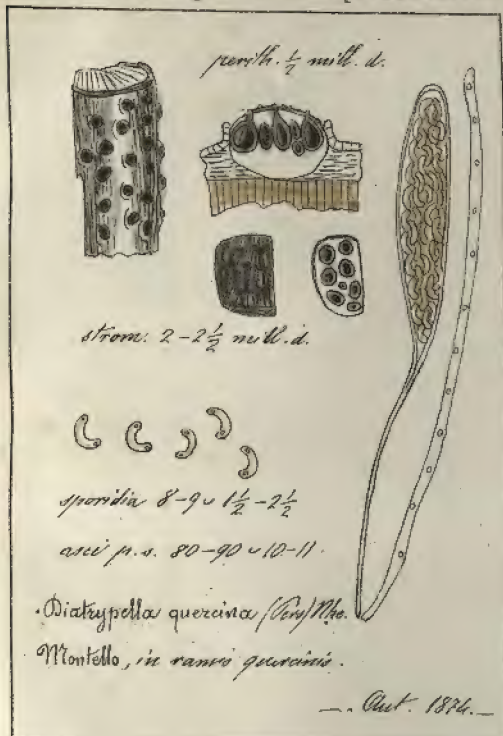 perith. ½ mill. d.
strom: 2 – 2½ mill. d.
sporidia 8–9 ᴗ 1½ – 2½
asci p. s. 80–90 ᴗ 10–11.
Diatrypella quercina (Pers) Nke.
Montello, in ramis quercinis.
–. Aut. 1874. –